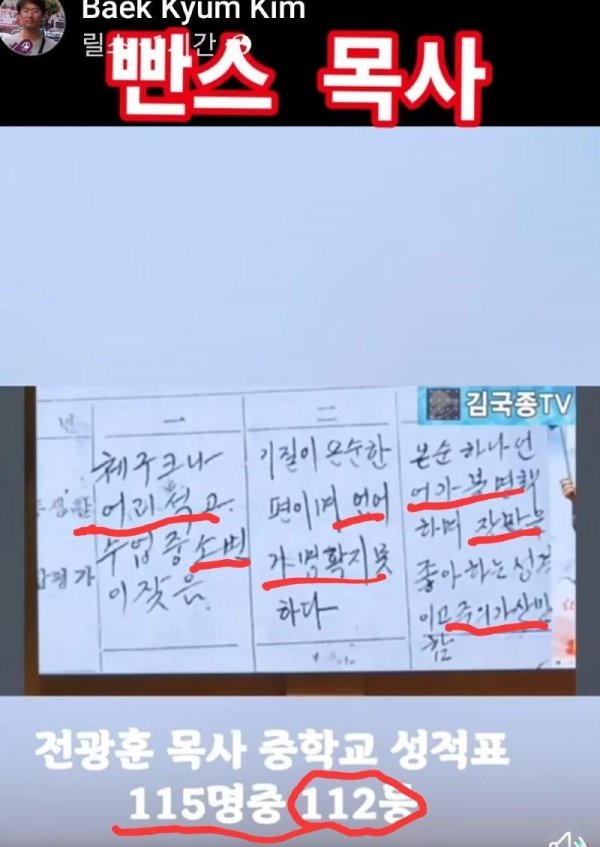 Baek Kyum Kim
빤스 목사
김국종TV
년
一
체구크나
어리석고
수업중 소변
이 잦음
二
기질이 온순한
편이며 언어
가 명확지 못
하다
온순하나 언
어가 불면해
하며 장난을
좋아하는 성격
이고 주의가 산만
함
평가
전광훈 목사 중학교 성적표
115명중 112등